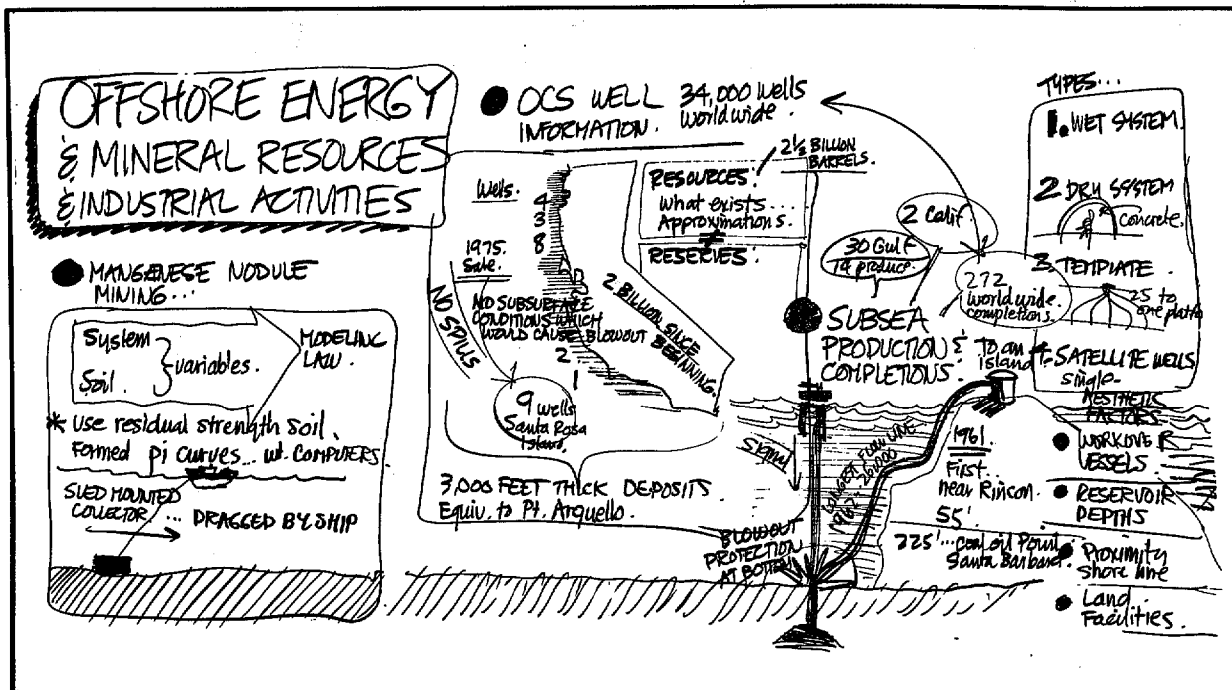 OFFSHORE ENERGY
& MINERAL RESOURCES
& INDUSTRIAL ACTIVITIES
MANGANESE NODULE
MINING...
System
Soil
variables.
MODELING
LAW.
* use residual strength soil.
Formed pi curves... w/. COMPUTERS
SLED MOUNTED
COLLECTOR...
DRAGGED BY SHIP
OCS WELL
INFORMATION.
34,000 Wells
Worldwide.
Wells.
4
3
8
2
1
1975
Sale.
NO SUBSURFACE
CONDITIONS WHICH
WOULD CAUSE BLOWOUT
NO SPILLS
9 wells
Santa Rosa
Island.
3,000 FEET THICK DEPOSITS.
Equiv. to Pt. Arguello.
2 BILLION SINCE
BEGINNING.
RESOURCES:
What exists...
Approximations.
≠
RESERVES:
2½ BILLION
BARRELS.
2 Calif.
30 Gulf
14 produce.
272
worldwide.
completions.
SUBSEA
PRODUCTION &
COMPLETIONS.
To an
island
Signal
LONGEST FLOW LINE
BLOWOUT
PROTECTION
AT BOTTOM
1961.
First...
near Rincon.
55'
225'... coal oil Point
Santa Barbara.
TYPES...
1. WET SYSTEM.
2 DRY SYSTEM
concrete.
3. TEMPLATE.
25 to
one platfm
4. SATELLITE WELLS
single-
AESTHETIC
FACTORS
WORKOVER
VESSELS.
RESERVOIR
DEPTHS
Proximity
shore line
Land
Facilities.